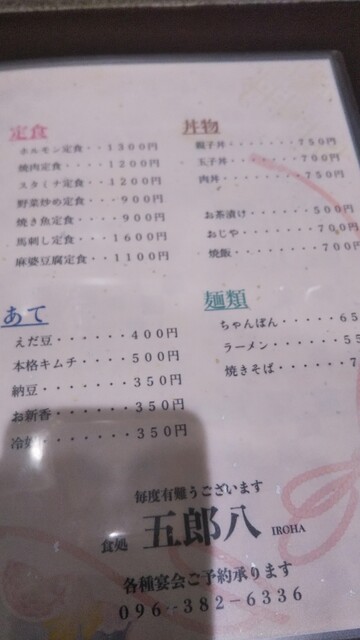 定食
ホルモン定食・・1300円
焼肉定食・・・・1200円
スタミナ定食・・1200円
野菜炒め定食・・・900円
焼き魚定食・・・・900円
馬刺し定食・・・1600円
麻婆豆腐定食・・・1100円
あて
えだ豆・・・・・・・400円
本格キムチ・・・・・500円
納豆・・・・・・・・350円
お新香・・・・・・・350円
・・・・・・・350円
丼物
親子丼・・・・・・・750円
玉子丼・・・・・・・700円
肉丼・・・・・・・・750円
お茶漬け・・・・・500円
おじや・・・・・・700円
焼飯・・・・・・・700
麺類
ちゃんぽん・・・・・65
ラーメン・・・・・・55
焼きそば・・・・・・7
毎度有難うございます
食処 五郎八 IROHA
各種宴会ご予約承ります
096-382-6336